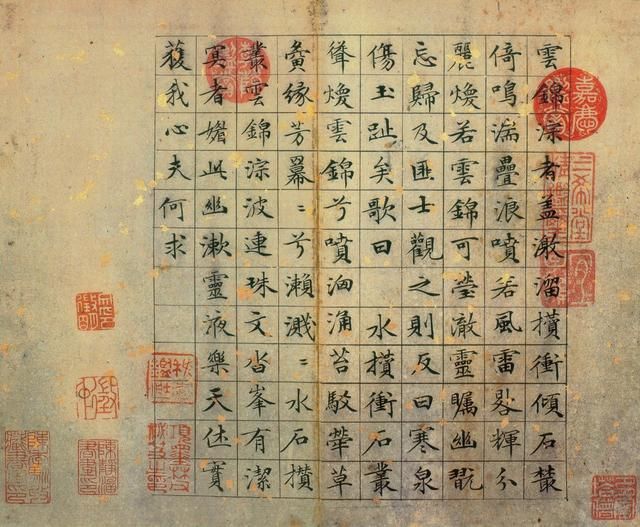 雲錦淙者盖激溜攢衝傾石叢
倚鳴湍疊浪噴若風雷輝分
麗煥若雲錦可瑩澈靈矚幽翫
忘歸及匪士觀之則反曰寒泉
傷玉趾矣歌曰 水攢衝石叢
聳煥雲錦兮噴洶涌苔駮犖草
夤緣芳羃〻兮瀨濺〻水石攢
叢雲錦淙波連珠文沓峯有潔
冥者媚此幽漱靈液樂天休實
獲我心夫何求